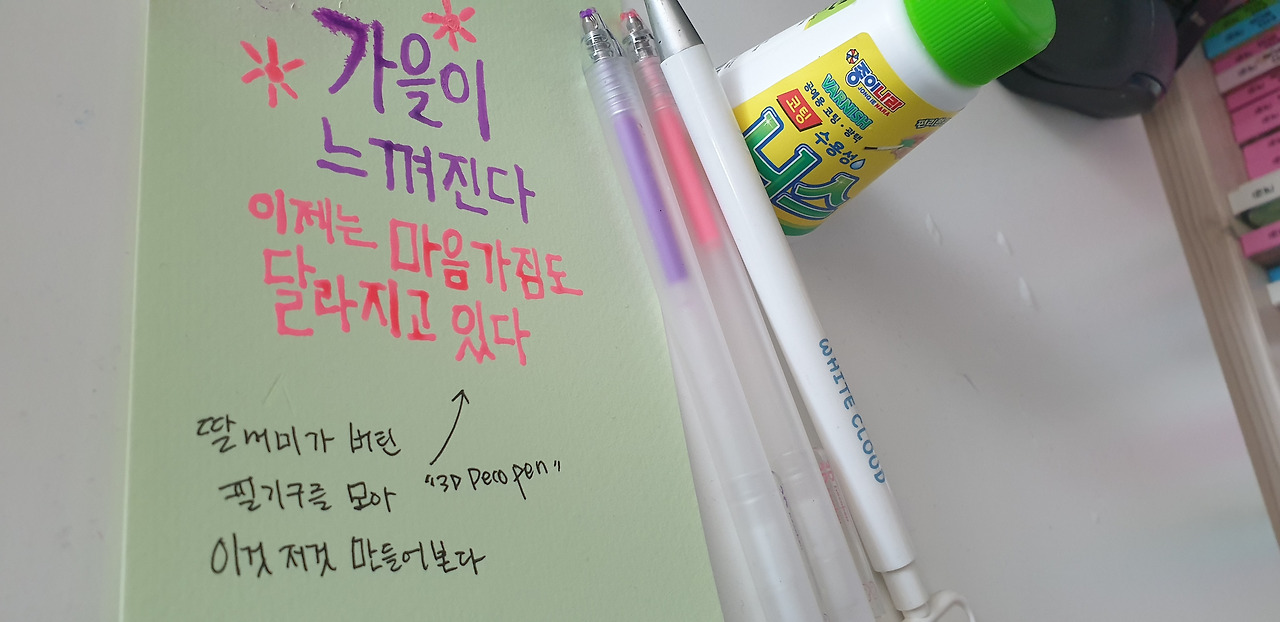 가을이
느껴진다
이제는 마음가짐도
달라지고 있다
딸래미가 버린
필기구를 모아
"3D Deco pen"
이것 저것 만들어본다
WHITE CLOUD
종이나라
JONG IE NARA
VARNISH
공예용 코팅·광택
코팅 수용성
니스